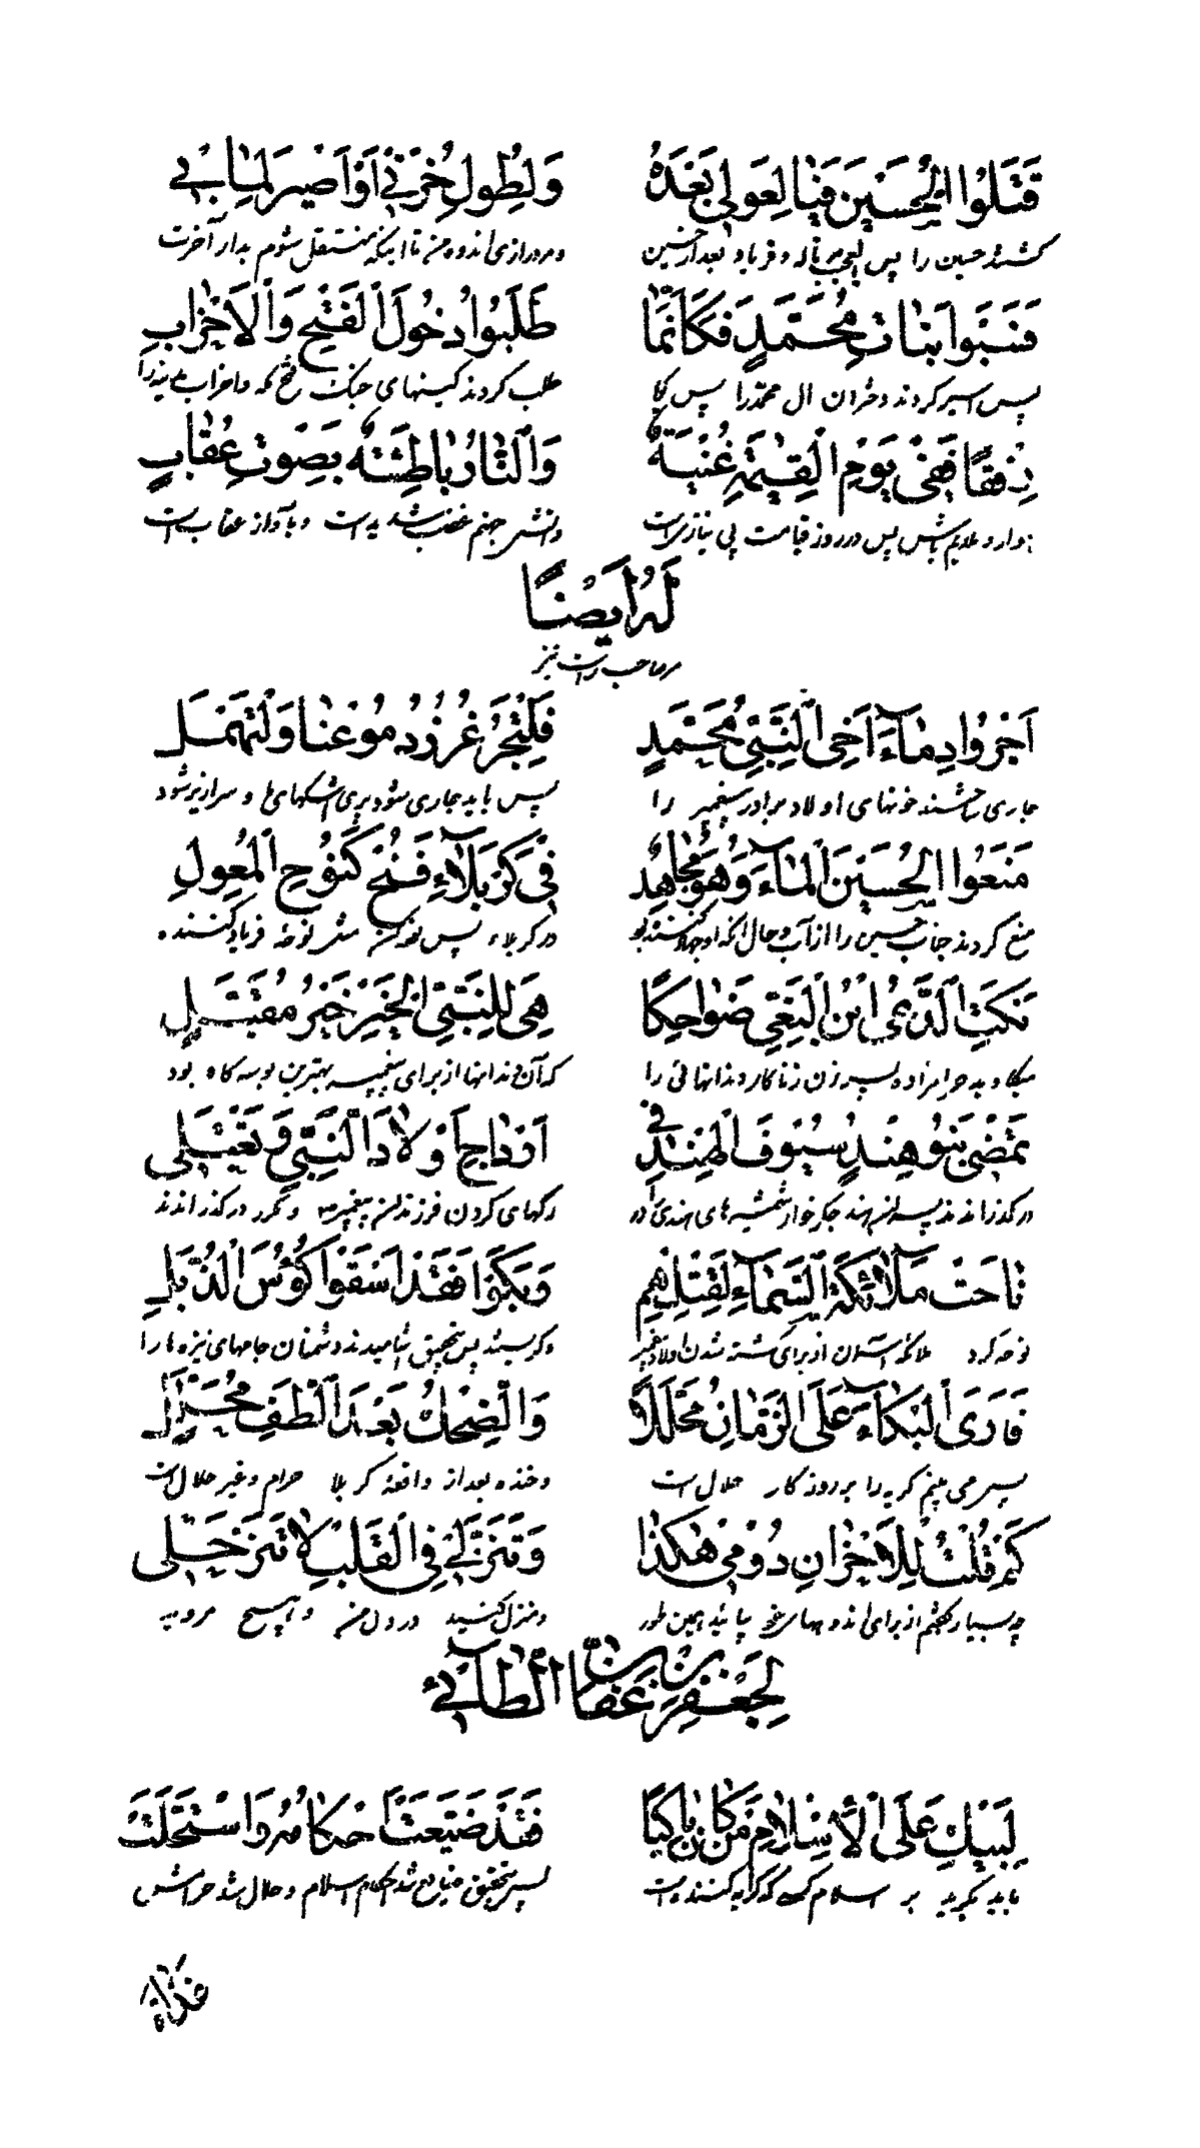 قَتَلُوا الْحُسَيْنَ فَيٰا لِعَوْلِي بَعْدَهُ وَلِطُولِ حُزْنِي أَوْ أَصِيرَ لِمٰابِي
كشتند حسين را پس ناله و فرياد بعد از حسين و مر درازى اندوه من تا اينكه منتقل شوم بدار آخرت
وَسَبَوا بَنٰاتِ مُحَمَّدٍ فَكَأَنَّمٰا طَلَبُوا دُخُولَ الْفَتْحِ وَالْأَحْزٰابِ
پس اسير كردند دختران ال محمد را پس طلب كردند كينهاى جنك فتح مكه و احزاب
رِفْقًا فَفِي يَوْمِ الْقِيٰمَةِ غُنْيَةٌ وَالنّٰارُ بٰاطِشَةٌ بِصَوْتِ عُقٰابٍ
پس در روز قيامت بى نيازى است و اتش جهنم و با آواز عقاب است
لَهُ أَيْضًا
نيز
أَجْرَوْا دِمٰاءَ أَخِي النَّبِيِّ مُحَمَّدٍ فَلْتَجْرِ غُزْرُ دُمُوعِنٰا وَلْتَهْمُلِ
جارى خونهاى اولاد برادر پيغمبر را پس بايد جارى شود اشكهاى ما و سرازير شود
مَنَعُوا الْحُسَيْنَ الْمٰاءَ وَهُوَ مُجٰاهِدٌ فِي كَرْبَلٰاءِ فَنُحْ كَنَوْحِ الْمُعْوِلِ
منع كردند جناب حسين را از آب و حال انكه او جهاد كننده بود در كربلاء پس نوحه كن مثل نوحه فرياد كننده
نَكَتَ الدَّعِيُّ ابْنُ الْبَغِيِّ ضَوٰاحِكًا هِيَ لِلنَّبِيِّ الْخَيْرِ خَيْرُ مُقَبَّلٍ
حرامزاده پسر زن زناكار دندانهائى را كه آن دندانها از براى پيغمبر بهترين بوسه كاه بود
تَمْضِي بَنُو هِنْدٍ سُيُوفَ الْهِنْدِ فِي أَوْدٰاجِ أَوْلٰادِ النَّبِيِّ وَتَعْتَلِي
در كذراندند پسران هند جكر خوار شمشيرهاى هندى را در ركهاى كردن فرزندان پيغمبر و مكرر در كذراندند
نٰاحَتْ مَلٰائِكَةُ السَّمٰاءِ لِقَتْلِهِمْ وَبَكَوْا فَقَدْ أُسْقَوْا كُؤُسَ الذُّبَّلِ
نوحه كرد ملائكه آسمان از براى كشته شدن اولاد پيغمبر و كريستند پس بتحقيق دشمنان جامهاى نيزه ها را
فَأَرَى الْبُكٰاءَ عَلَى الزَّمٰانِ مُحَلَّلًا وَالضِّحْكَ بَعْدَ الطَّفِّ مُحَرَّمًا
پس مى بينم كريه را بر روزكار حلال است و خنده بعد از واقعۀ كربلا حرام و غير حلال است
كَمْ قُلْتُ لِلْأَحْزٰانِ دُومِي هٰكَذٰا وَتَنَزَّلِي فِي الْقَلْبِ لٰا تَتَرَحَّلِي
چه بسيار كفتم از براى اندوهها همين طور و منزل كنيد در دل من و هيچ مرويد
لِجَعْفَرِ بْنِ عَفّٰانَ الطّٰائِيِّ
لِيَبْكِ عَلَى الْإِسْلٰامِ مَنْ كٰانَ بٰاكِيًا فَقَدْ ضُيِّعَتْ أَحْكٰامُهُ وَاسْتُحِلَّتْ
بايد بكريد بر اسلام كسى كه كريه كننده است پس بتحقيق ضايع شد احكام اسلام و حلال شد حرامش
غداة